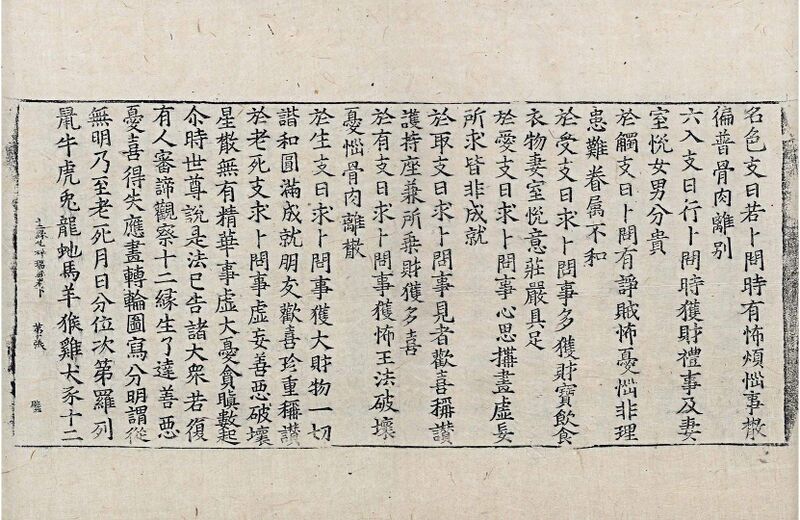 名色支日若卜問時有怖煩惱事散
徧普骨肉離別
六入支日行卜問時獲財禮事及妻
室悅女男分貴
於觸支日卜問有諍賊怖憂惱非理
患難眷属不和
於受支日求卜問事多獲財寶飲食
衣物妻室悅意莊嚴具足
於愛支日求卜問事心思攝畫虛妄
所求皆非成就
於取支日求卜問事見者歡喜稱讃
護持座兼所乗財獲多喜
於有支日求卜問事獲怖王法破壊
憂惱骨肉離散
於生支日求卜問事獲大財物一切
諧和圓滿成就朋友歡喜珍重稱讃
於老死支求卜問事虛妄善惡破壊
星散無有精華事虛大憂貪瞋數起
尒時世尊說是法已告諸大衆若復
有人審諦觀察十二緣生了達善惡
憂喜得失應畫轉輪圖寫分明謂從
無明乃至老死月日分位次第羅列
鼠牛虎兔龍虵馬羊猴雞犬豕十二
十二緣生祥瑞經卷下 第下張